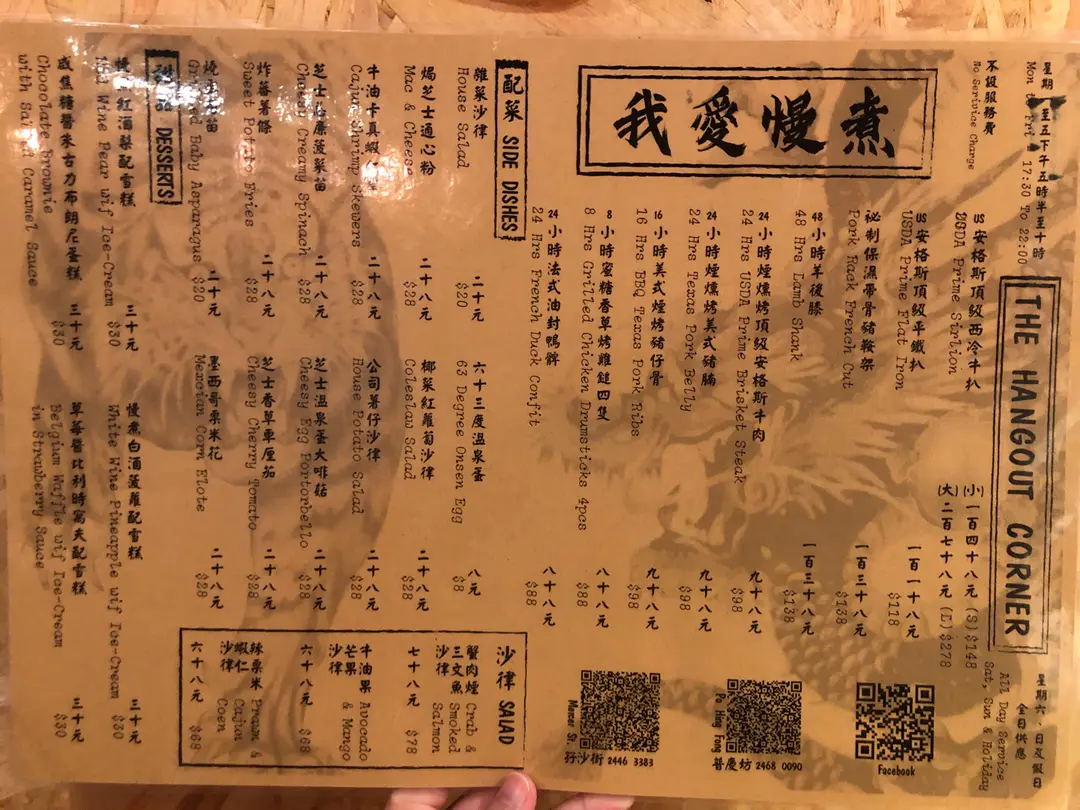 THE HANGOUT CORNER
星期一至五下午五時半至十時
17:30 To 22:00
不設服務費
No Serivice Charge
星期六,日及假日
全日供應
All Day Service
Sat, Sun & Holiday
我愛慢煮
US安格斯頂級西冷牛扒
USDA Prime Sirlion
(小)一百四十八元 (S)$148
(大)二百七十八元 (L)$278
US安格斯頂級平鐵扒
USDA Prime Flat Iron
一百一十八元
$118
秘制保濕帶骨豬鞍架
Pork Rack French Cut
一百三十八元
$138
48小時羊後膝
48 Hrs Lamb Shank
一百三十八元
$138
24小時煙燻烤頂級安格斯牛肉
24 Hrs USDA Prime Brisket Steak
九十八元
$98
24小時煙燻烤美式豬腩
24 Hrs Texas Pork Belly
九十八元
$98
16小時美式煙烤豬仔骨
16 Hrs BBQ Texas Pork Ribs
九十八元
$98
8小時蜜糖香草烤雞鎚四隻
8 Hrs Grilled Chicken Drumsticks 4pcs
八十八元
$88
24小時法式油封鴨髀
24 Hrs French Duck Confit
八十八元
$88
Facebook
Po Hing Fong
普慶坊 2468 0090
2446 3383
配菜 SIDE DISHES
雜菜沙律
House Salad
二十元
$20
六十三度溫泉蛋
63 Degree Onsen Egg
八元
$8
焗芝士通心粉
Mac & Cheese
二十八元
$28
椰菜紅蘿蔔沙律
Coleslaw Salad
二十八元
$28
Cajun Shrimp Skewers
二十八元
$28
公司薯仔沙律
House Potato Salad
二十八元
$28
Cheesy Creamy Spinach
二十八元
$28
芝士溫泉蛋大啡菇
Cheesy Egg Portorbello
二十八元
$28
炸蕃薯條
Sweet Potato Fries
二十八元
$28
芝士香草車厘茄
Cheesy Cherry Tomato
二十八元
$28
Baby Asparagus
二十元
$20
墨西哥粟米花
Mexcian Corn Elote
二十八元
$28
沙律 SALAD
蟹肉煙三文魚沙律
Crab & Smoked Salmon
七十八元
$78
牛油果芒果沙律
Avocado & Mango
六十八元
$68
辣粟米蝦仁沙律
Prawn & Cajun Coen
六十八元
$68
DESSERTS
紅酒梨配雪糕
Wine Pear wif Ice-Cream
三十元
$30
慢煮白酒菠蘿配雪糕
White Wine Pineapple wif Ice-Cream
三十元
$30
鹹焦糖醬朱古力布朗尼蛋糕
Chocolate Brownie
with Salted Caramel Sauce
三十元
$30
草莓醬比利時窩夫配雪糕
Belgium Waffle wif Ice-Cream
in Strawberry Sauce
三十元
$30